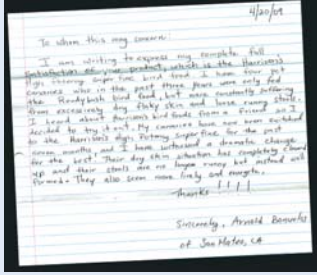 4/20/09
To whom this may concern:
I am writing to express my complete full
satisfaction of your product, which is the Harrison's
High Potency Super fine bird food. I have four pet
canaries who in the past three years were only fed
the Roudybush bird food, but were constantly suffering
from excessively dry flaky skin and loose runny stools.
I heard about Harrison's bird foods from a friend so I
decided to try it out. My canaries have now been switched
to the Harrison's High Potency Superfine for the past
seven months and I have witnessed a dramatic change
for the best! Their dry skin situation has completely cleared
up and their stools are no longer runny but instead well
formed. They also seem more lively and energetic.
Thanks!!!!
Sincerely, Arnold
of San Mateo, CA